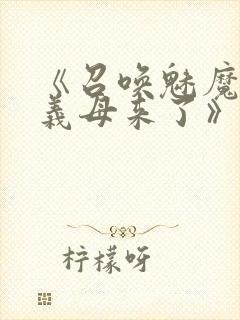 《召唤魅魔
义母来了》
柠檬呀